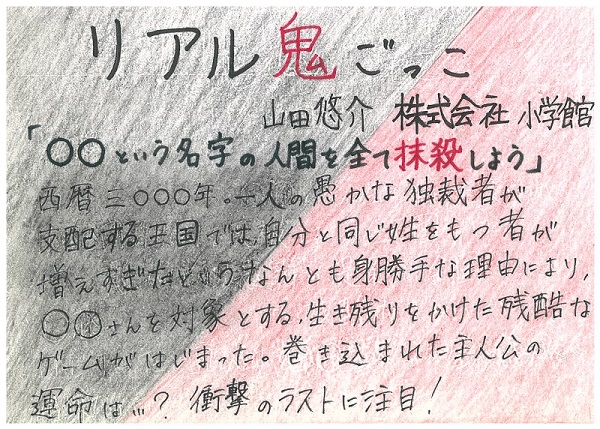 リアル鬼ごっこ
山田悠介 株式会社 小学館
「〇〇という名字の人間を全て抹殺しよう」
西暦三〇〇〇年。一人の愚かな独裁者が
支配する王国では、自分と同じ姓をもつ者が
増えすぎたというなんとも身勝手な理由により、
〇〇さんを対象とする、生き残りをかけた残酷な
ゲームがはじまった。巻き込まれた主人公の
運命は…?衝撃のラストに注目!